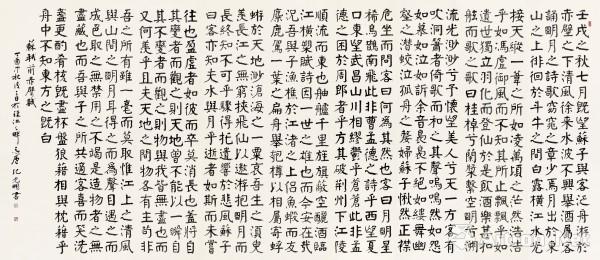 壬戌之秋七月既望蘇子與客泛舟游於
赤壁之下清風徐來水波不興舉酒屬客
誦明月之詩歌窈窕之章少焉月出於東
山之上徘徊於斗牛之間白露橫江水光
接天縱一葦之所如凌萬頃之茫然浩浩
乎如馮虛御風而不知其所止飄飄乎如
遺世獨立羽化而登仙於是飲酒樂甚扣
舷而歌之歌曰桂棹兮蘭槳擊空明兮溯
流光渺渺兮予懷望美人兮天一方客有
吹洞簫者倚歌而和之其聲嗚嗚然如怨
如慕如泣如訴余音裊裊不絕如縷舞幽
壑之潛蛟泣孤舟之嫠婦蘇子愀然正襟
危坐而問客曰何為其然也客曰月明星
稀烏鵲南飛此非曹孟德之詩乎西望夏
口東望武昌山川相繆鬱乎蒼蒼此非孟
德之困於周郎者乎方其破荊州下江陵
順流而東也舳艫千里旌旗蔽空釃酒臨
江橫槊賦詩固一世之雄也而今安在哉
況吾與子漁樵於江渚之上侶魚蝦而友
麋鹿駕一葉之扁舟舉匏樽以相屬寄蜉
蝣於天地渺滄海之一粟哀吾生之須臾
羨長江之無窮挾飛仙以遨游抱明月而
長終知不可乎驟得托遺響於悲風蘇子
曰客亦知夫水與月乎逝者如斯而未嘗
往也盈虛者如彼而卒莫消長也蓋將自
其變者而觀之則天地曾不能以一瞬自
其不變者而觀之則物與我皆無盡也而
又何羨乎且夫天地之間物各有主苟非
吾之所有雖一毫而莫取惟江上之清風
與山間之明月耳得之而為聲目遇之而
成色取之無禁用之不竭是造物者之無
盡藏也而吾與子之所共適客喜而笑洗
盞更酌肴核既盡杯盤狼藉相與枕藉乎
舟中不知東方之既白
蘇軾前赤壁賦